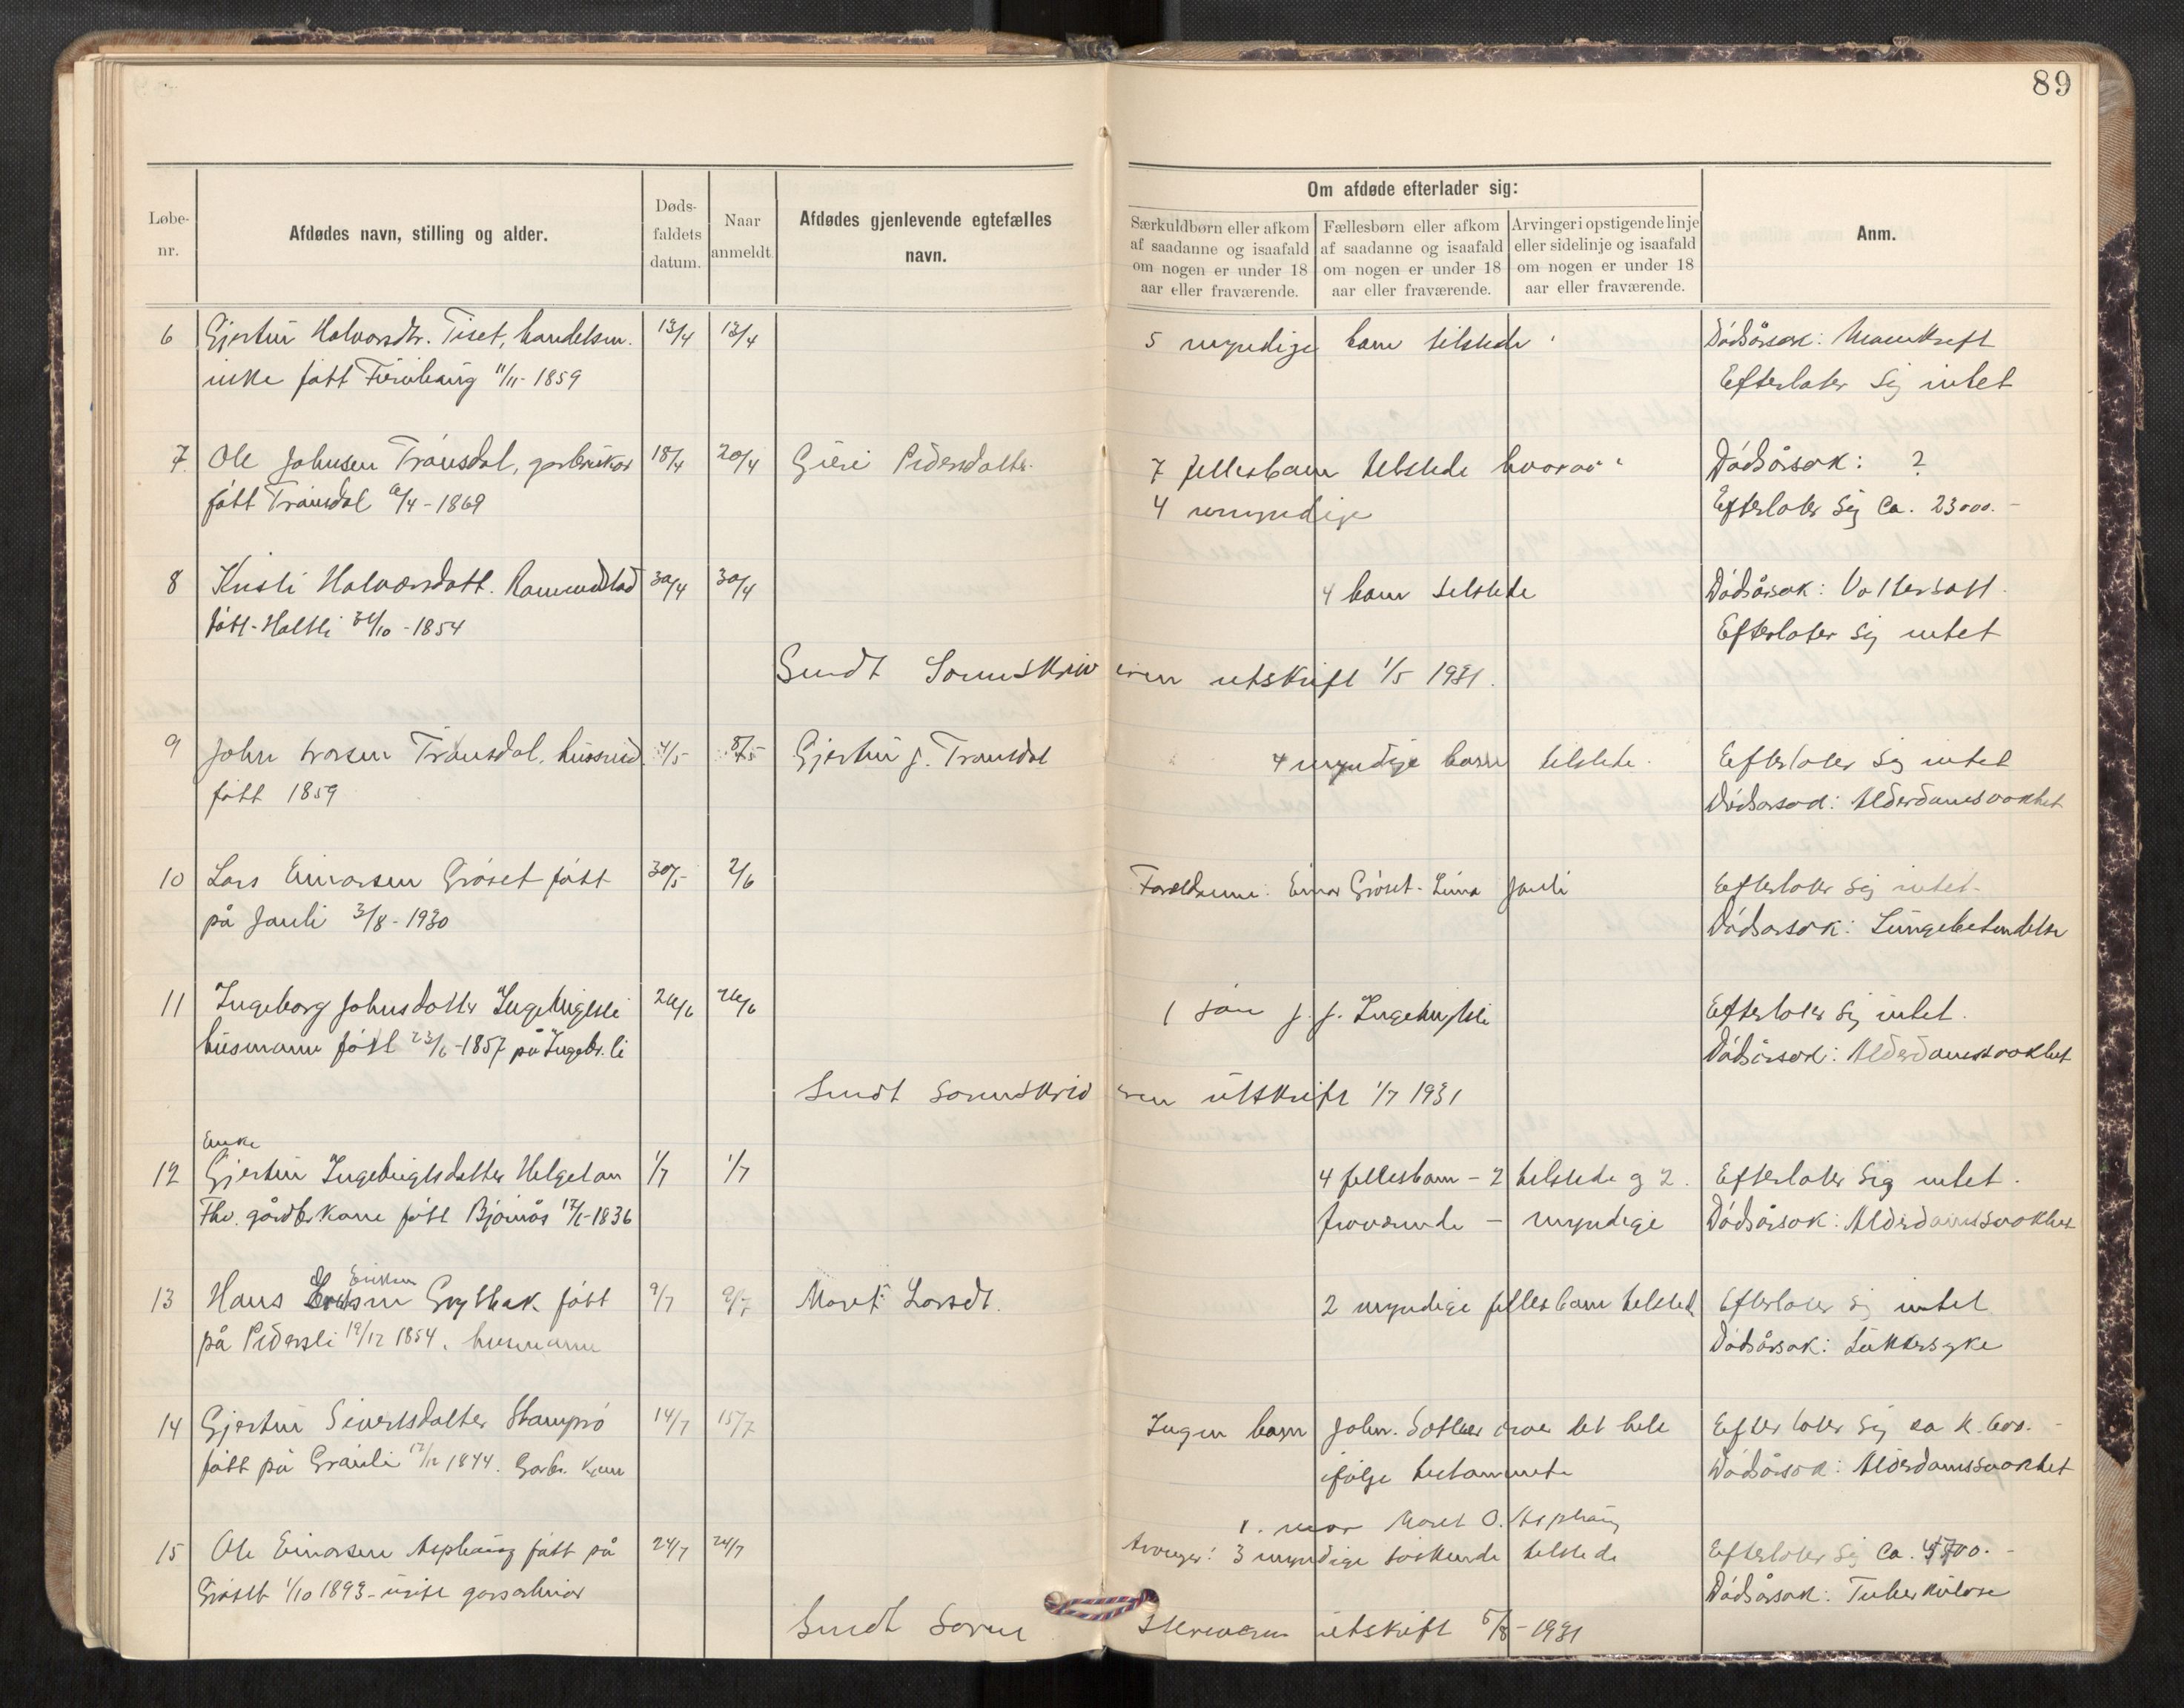 89
Løbe-
nr.
Afdødes navn, stilling og alder.
Døds-
faldets
datum.
Naar
anmeldt.
Afdødes gjenlevende egtefælles
navn.
Om afdøde efterlader sig:
Særkuldbørn eller afkom
af saadanne og isaafald
om nogen er under 18
aar eller fraværende.
Fællesbørn eller afkom
af saadanne og isaafald
om nogen er under 18
aar eller fraværende.
Arvinger i opstigende linje
eller sidelinje og isaafald
om nogen er under 18
aar eller fraværende.
Anm.
6 Gjertin Halvorsdtr. Tiset, handelsm. 13/4 13/4 5 myndige barn tilstede Dødsårsak:
enke født 11/11-1859 Efterlater sig intet
7. Ole Johnsen Trånsdal, garbruker 18/4 20/4 Guri Pedersdatter 7 fellesbarn tilstede hvorav Dødsårsak: ?
født Trånsdal /4-1869 4 umyndige Efterlater sig ca. 23000.-
8 Kristi Halvorsdatt. Ramundstad 30/4 30/4 4 barn tilstede Dødsårsak: Vattersott.
født Haltli /10-1854 Efterlater sig intet
Sendt Sorenskriveren utskrift 1/5 1931.
9 John Trånsdal, 4/5 8/5 Gjertin J. Transdal 4 myndige barn tilstede. Efterlater sig intet
født 1859 Dødsarsak: Alderdomssvakhet
10 Lars Einarsen Grøset født 30/5 2/6 Foreldrene: Einar Grøset - Lina Jauli Efterlater sig intet.
på Jauli 3/8-1930 Dødsarsak: Lungebetendelse
11 Ingeborg Johnsdatter Ingebrigtsli 26/6 26/6 1 søn J. J. Ingebrigtsli Efterlater sig intet.
husmann født 23/6-1857 på Ingebr.li Dødsårsak: Alderdomssvakhet
Sendt sorenskriveren utskrift 1/7 1931
Enke
12 Gjertin Ingebrigtsdatter Helgetun 1/7 1/7 4 fellesbarn - 2 tilstede og 2. Efterlater sig intet.
Fhv. gårdbr.kone født Bjørnås 1836 fraværende - myndige Dødsårsak: Alderdomssvakhet
Eriksen
13 Hans Grytbak født 9/7 9/7 Maret Larsdt. 2 myndige fellesbarn tilsted Efterlater sig intet
på Pedersli 19/12 1854. husmann Dødsårsak: Sukkersyke
14 Gjertin Sivertsdatter Stamprø 14/7 15/7 Ingen barn John. Sætter arver det hele Efterlater sig ca k. 600.-
født på Grauli 1844. Garbr. kone ifølge testamente Dødsårsak: Alderdomssvakhet
1. mor Maret O. Asphaug
15 Ole Einarsen Asphaug født på 24/7 24/7 Arvinger: 3 myndige søskende tilstede Efterlater sig ca.
Grøset 1/10 1893 - ugift garsarbeider Dødsårsak: Tuberkulose
Sendt Sorenskriveren utskrift 5/8-1931